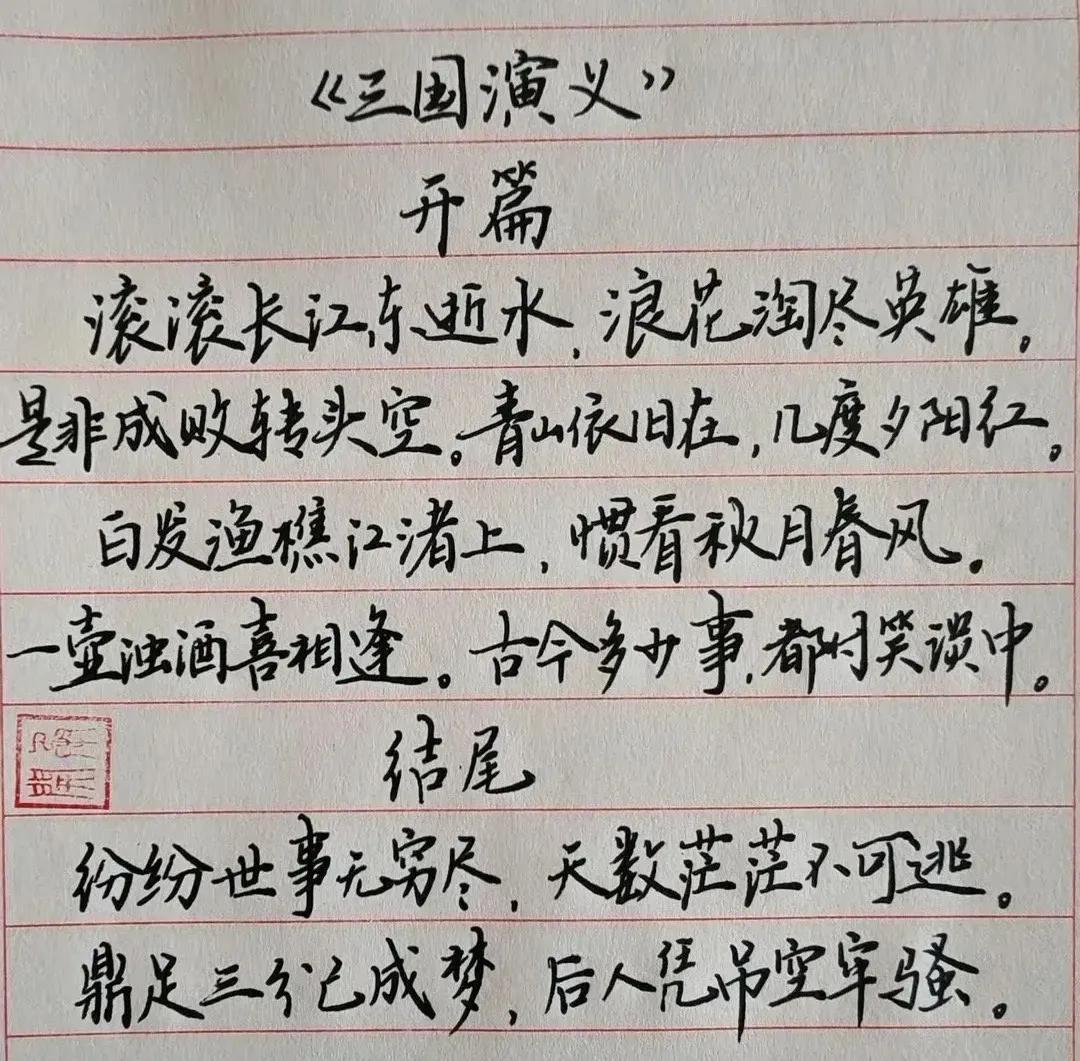 《三国演义》
开篇
滚滚长江东逝水,浪花淘尽英雄。
是非成败转头空。青山依旧在,几度夕阳红。
白发渔樵江渚上,惯看秋月春风。
一壶浊酒喜相逢。古今多少事,都付笑谈中。
结尾
纷纷世事无穷尽,天数茫茫不可逃。
鼎足三分已成梦,后人凭吊空牢骚。